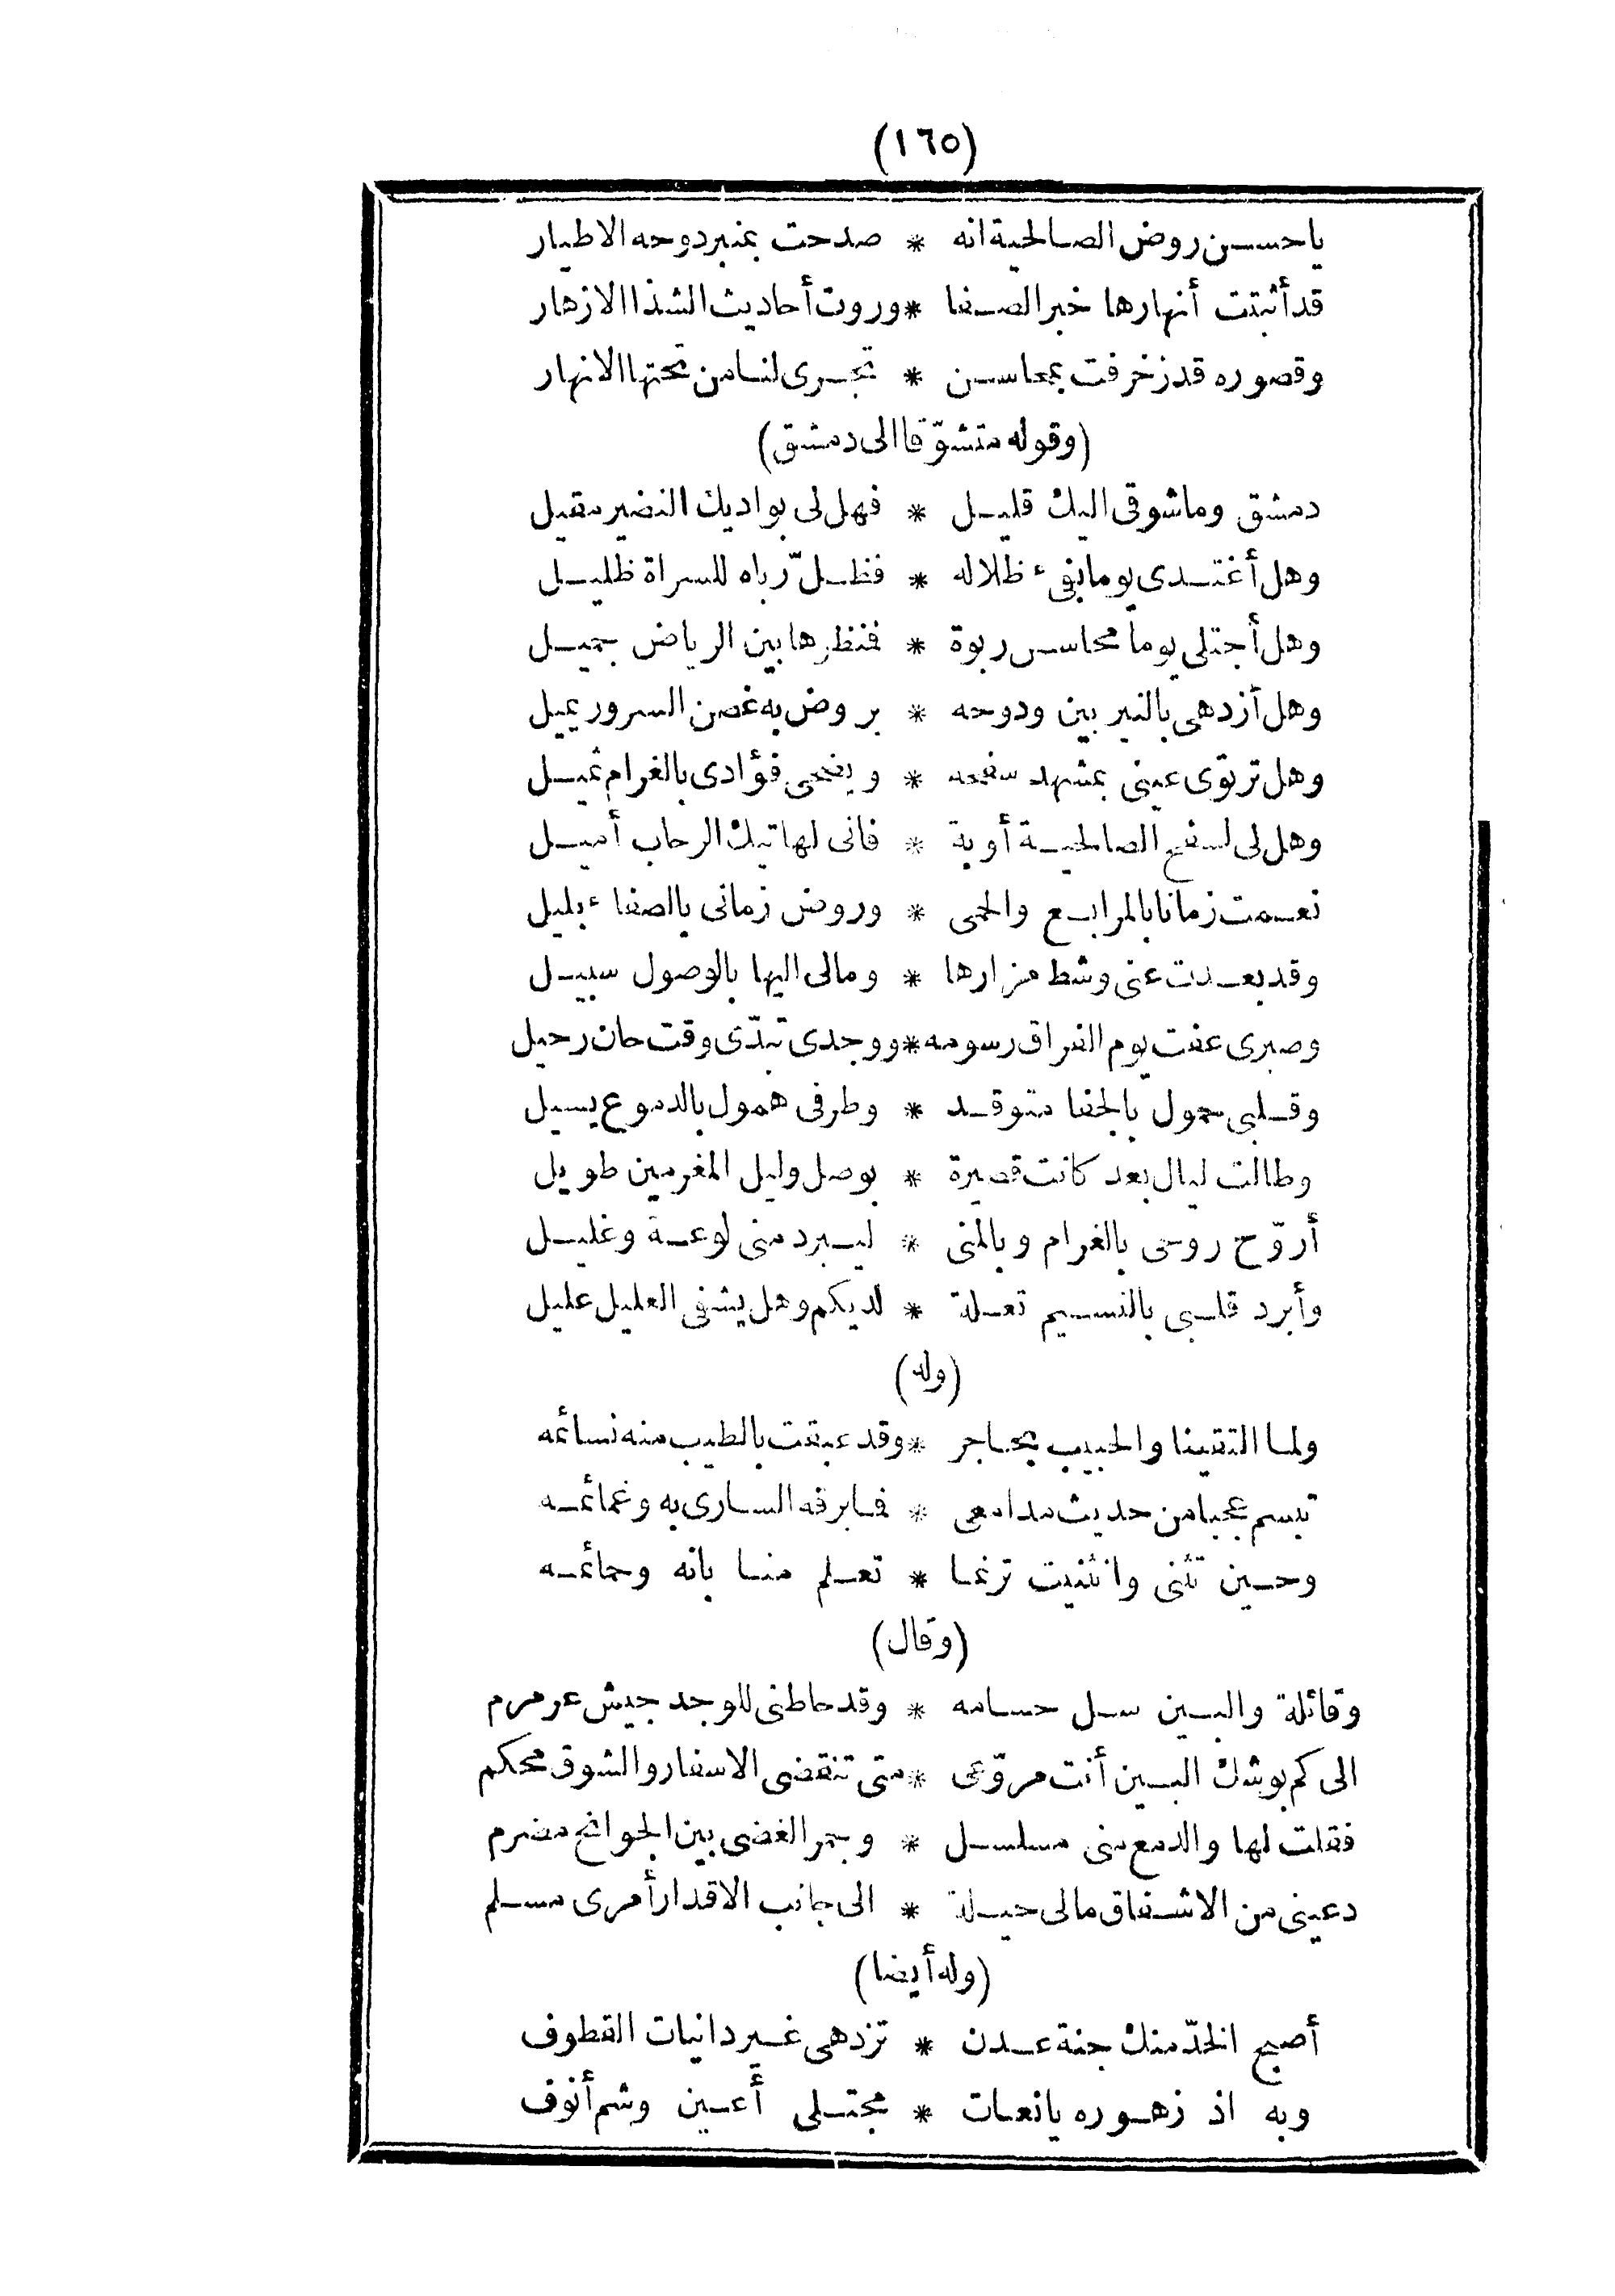 (١٦٥)
يا حسن روض الصالحية انه * صدحت بمنبر دوحه الاطيار
قد أثبتت أنهارها خبر الصفا * وروت أحاديث الشذا الازهار
وقصوره قد زخرفت بمحاسن * تجرى لنا من تحتها الانهار
(وقوله متشوّقا الى دمشق)
دمشق وما شوقى اليك قليل * فهل لى بواديك النضير مقيل
وهل أغتدى يوما بفىء ظلاله * فظلّ رباه للسراة ظليل
وهل أجتلى يوما محاسن ربوة * فنظرها بين الرياض جميل
وهل أزدهى بالنيربين ودوحه * بروض به غصن السرور يميل
وهل ترتوى عينى بمشهد سفحه * ويضحى فؤادى بالغرام ثميل
وهل لى لسفح الصالحية أوبة * فانى لهاتيك الرحاب أميل
نعمت زمانا بالمرابع والحمى * وروض زمانى بالصفاء بليل
وقد بعدت عنى وشط مزارها * ومالى اليها بالوصول سبيل
وصبرى عفت يوم الفراق رسومه * ووجدى تبدّى وقت حان رحيل
وقلبى حمول بالجفا متوقد * وطرفى همول بالدموع يسيل
وطالت ليال بعد كانت قصيرة * بوصل وليل المغرمين طويل
أروّح روحى بالغرام وبالمنى * ليبرد منى لوعة وغليل
وأبرد قلبى بالنسيم تعلة * لديكم وهل يشفى العليل عليل
(وله)
ولما التقينا والحبيب بحاجر * وقد عبقت بالطيب منه نسائمه
تبسم عجبا من حديث مدامعى * فما برقه السارى به وغمائمه
وحين تثنى وانثنيت ترنما * تعلم منا بانه وحمائمه
(وقال)
وقائلة والبين سل حسامه * وقد حاطنى للوجد جيش عرمرم
الى كم بوشك البين أنت مروّعى * متى تنقضى الاسفار والشوق محكم
فقلت لها والدمع منى مسلسل * وجمر الغضى بين الجوانح مضرم
دعينى من الاشفاق مالى حيلة * الى جانب الاقدار أمرى مسلم
(وله أيضا)
أصبح الخدّ منك جنة عدن * تزدهى غير دانيات القطوف
وبه اذ زهوره يانعات * مجتلى أعين وشم أنوف